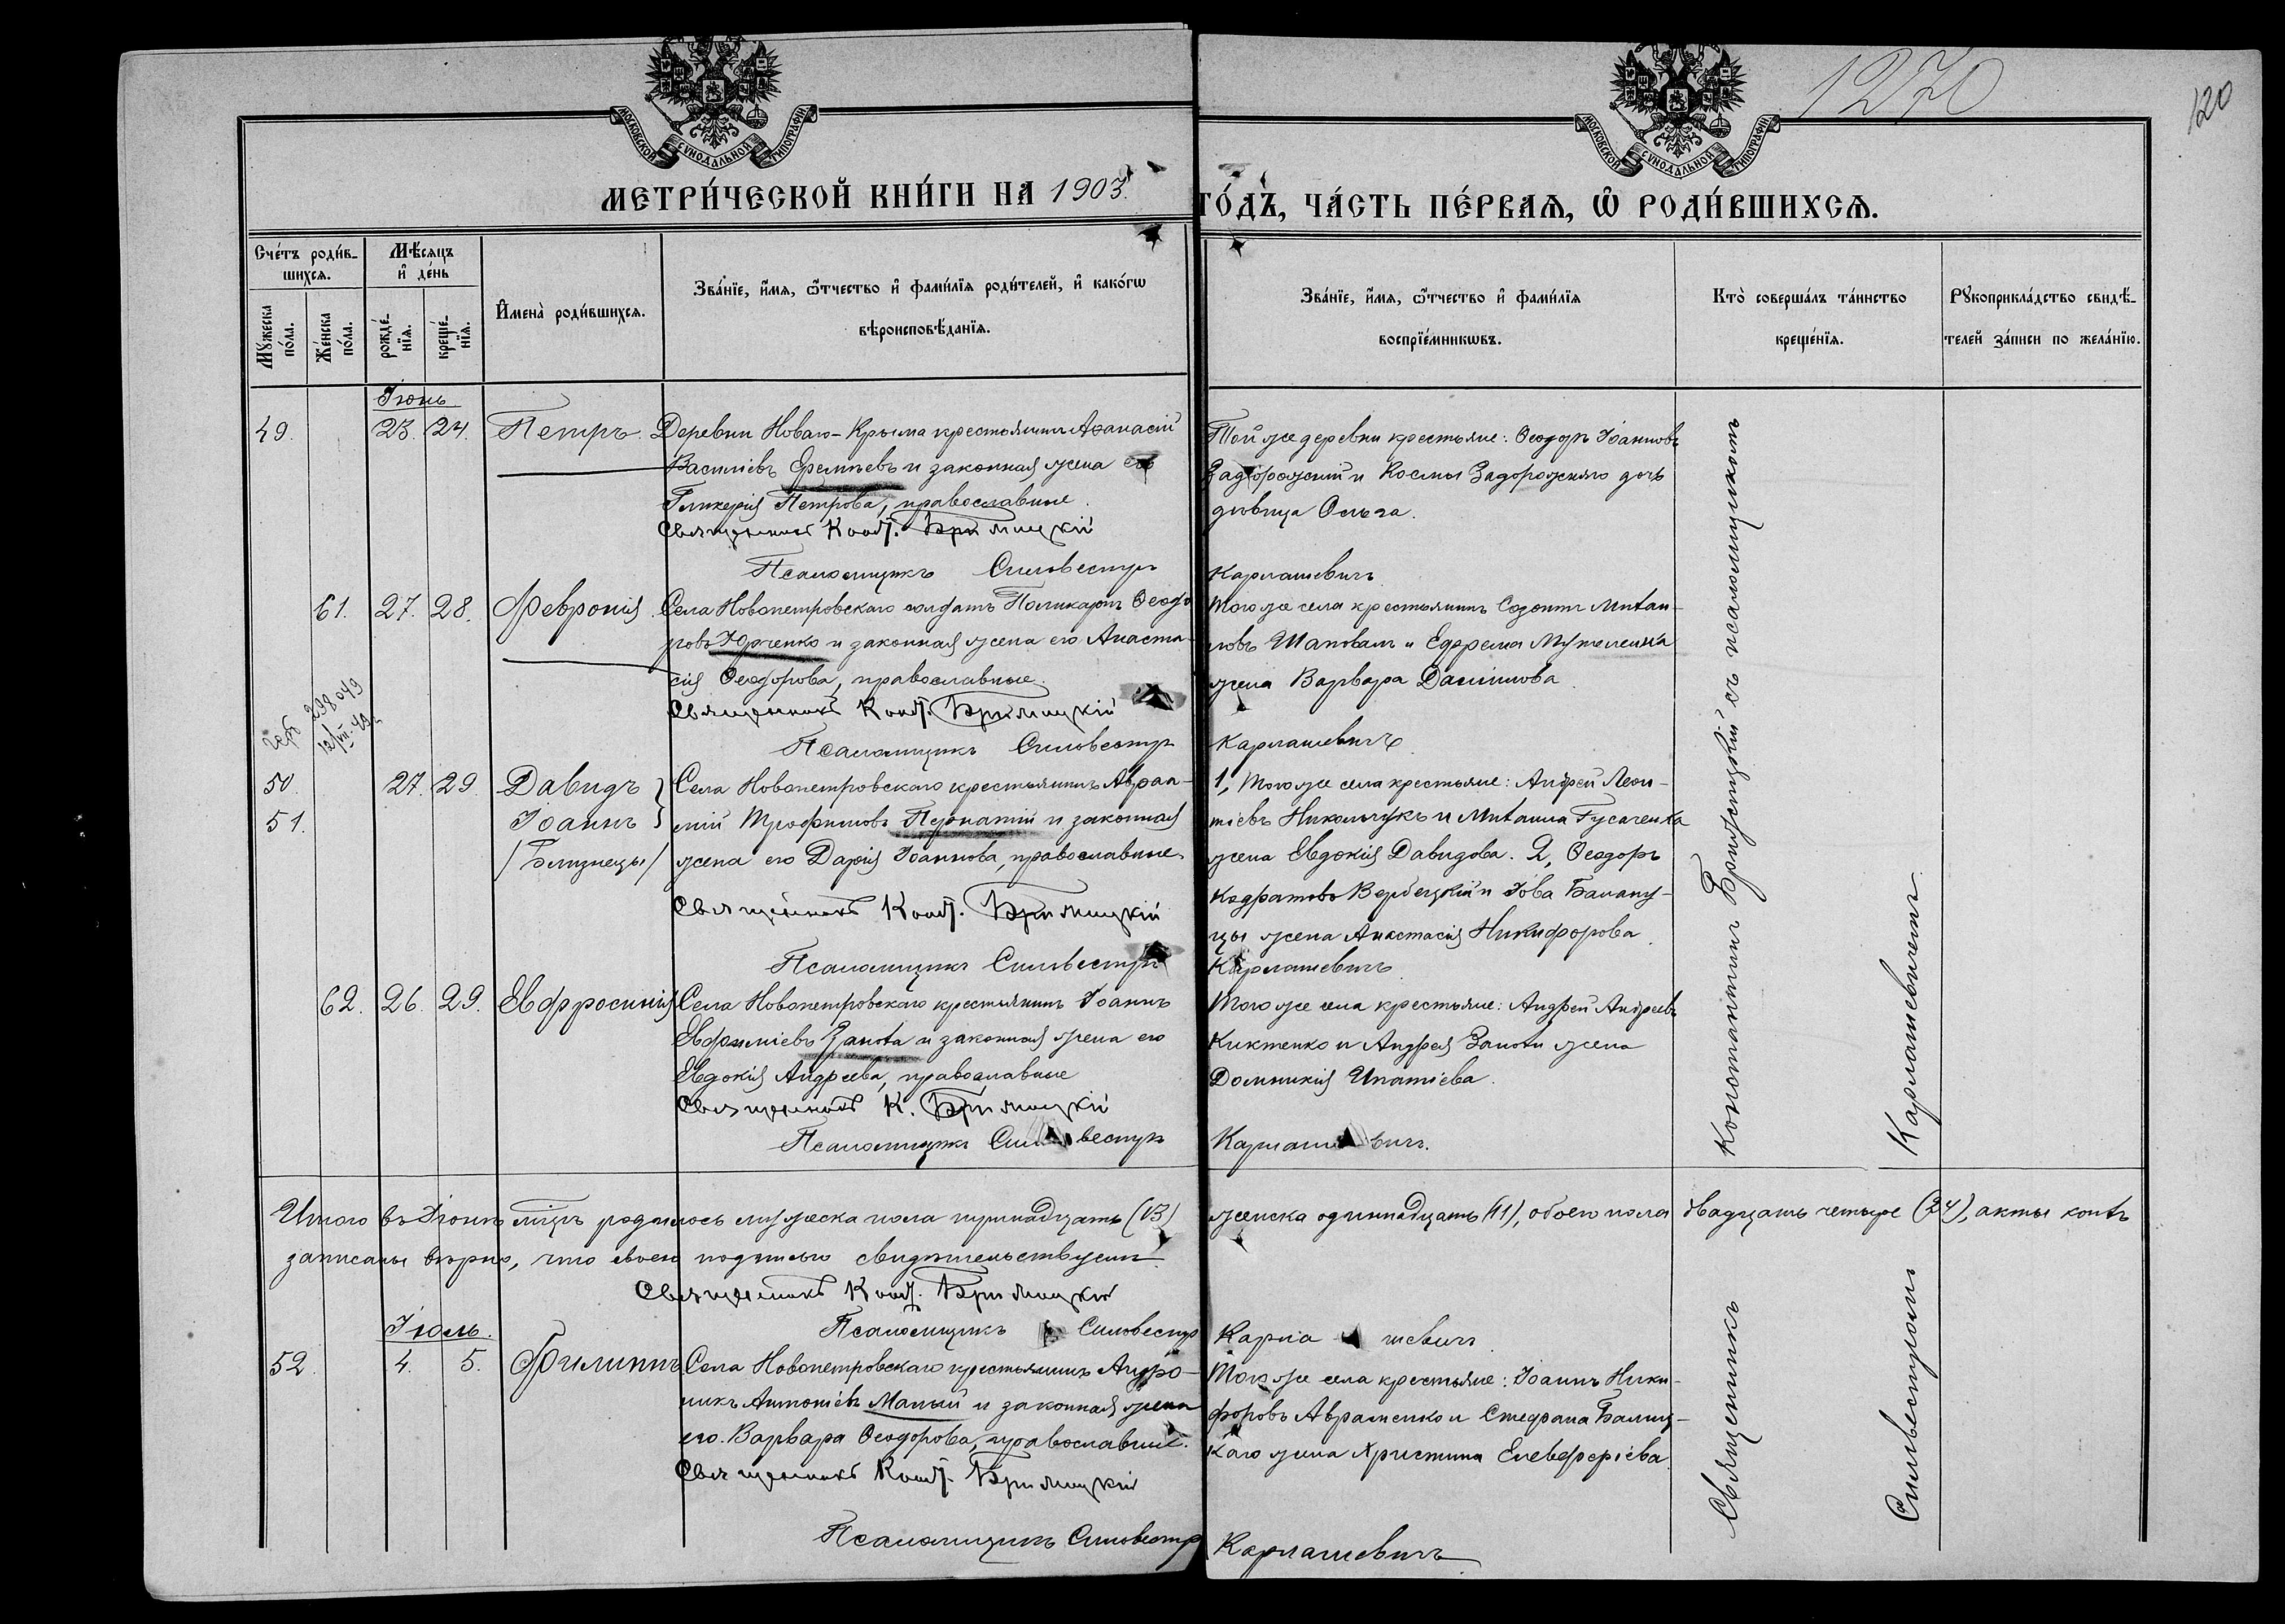 1270
120
МОСКОВСКОЙ СУНОДАЛЬНОЙ ТИПОГРАФІИ
МОСКОВСКОЙ СУНОДАЛЬНОЙ ТИПОГРАФІИ
МЕТРИ́ЧЕСКОЙ КНИ́ГИ НА 1903.
ГО́ДЪ, ЧА́СТЬ ПЕ́РВАѦ, Ѡ РОДИ́ВШИХСѦ.
Сче́тъ роди́в-
шихсѧ.
Мѣ́сѧцъ
и҆ де́нь
Мꙋ́жеска
по́ла.
Же́нска
по́ла.
рожде́-
нїѧ.
креще́-
нїѧ.
И҆мена̀ роди́вшихсѧ.
Зва́нїе, и҆́мѧ, ѻ҆́тчество и҆ фами́лїѧ роди́телей, и҆ како́гѡ
вѣроисповѣ́данїѧ.
Зва́нїе, и҆́мѧ, ѻ҆́тчество и҆ фами́лїѧ
воспрїе́мникѡвъ.
Кто̀ соверша́лъ та́инство
креще́нїѧ.
Рꙋкоприкла́дство свидѣ́-
телей за́писи по жела́нїю.
Іюнь
49. 23. 24. Петръ. Деревни Новаго-Крыма крестьянинъ Аѳанасій
Василіевъ Еремѣевъ и законная жена его
Гликерія Петрова, православные.
Священникъ Конст. Бржозицкій
Псаломщикъ Сильвестръ
Той же деревни крестьяне: Ѳеодоръ Іоанновъ
Задорожній и Космы Задорожняго дочь
дѣвица Ольга.
Карлашевичъ
61. 27. 28. Февронія. Села Новопетровскаго солдатъ Поликарпъ Ѳеодо
ровъ Юрченко и законная жена его Анаста-
сія Ѳеодорова, православные.
Священникъ Конст.
Псаломщикъ Сильвестръ
Того же села крестьянинъ Созонтъ Михаи-
ловъ Шаповалъ и Ефрема
жена Варвара Даніилова
Карлашевичъ
298049
12/VII-49
50. 27. 29. Давидъ Села Новопетровскаго крестьянинъ Авраа-
51. Іоаннъ мій Трофимовъ Пернатій и законная
/Близнецы/ жена его Дарія Іоаннова, православные.
Священникъ Конст.
Псаломщикъ Сильвестръ
1, Того же села крестьяне: Андрей Леон-
тіевъ Никольчукъ и Михаила Гусаченка
жена Евдокія Давидова. 2, Ѳеодоръ
Кодратовъ Вербецкій и Іова Балану-
цы жена Анастасія Никифорова
Карлашевичъ
62. 26. 29. Евфросинія Села Новопетровскаго крестьянинъ Іоаннъ
Евфиміевъ Запота и законная жена его
Евдокія Андреева, православные
Священникъ К.
Псаломщикъ Сильвестръ
Того же села крестьяне: Андрей Андреевъ
Кихтенко и Андрея Запоты жена
Домникія Ипатіева.
Карлашевичъ.
Итого въ Іюнѣ мѣс. родилось мужеска пола тринадцать (13)
женска одиннадцать (11), обоего пола двадцать четыре (24), акты коихъ
записаны вѣрно, что своею подписью свидѣтельствуемъ
Священникъ Конст.
Псаломщикъ Сильвестръ
Карлашевичъ
Іюль.
52. 4. 5. Филиппъ Села Новопетровскаго крестьянинъ Андро-
никъ Антоніевъ Малый и законная жена
его Варвара Ѳеодорова, православные.
Священникъ Конст.
Псаломщикъ Сильвестръ
Того же села крестьяне: Іоаннъ Ники-
форовъ Авраменко и Стефана Балиц-
каго жена Христина Елевферіева.
Карлашевичъ
Священникъ Константинъ съ псаломщикомъ
Сильвестромъ Карлашевичемъ.